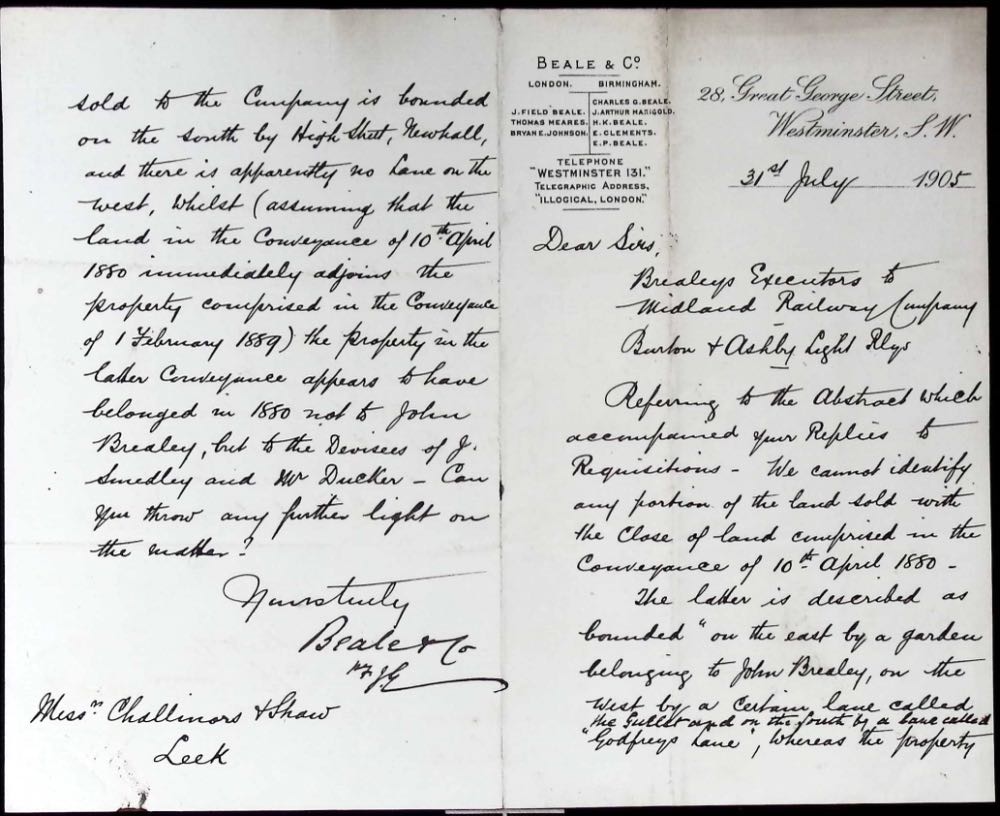 BEALE & Co
LONDON. BIRMINGHAM.
J. FIELD BEALE.
THOMAS MEARES.
BRYAN E. JOHNSON.
CHARLES G. BEALE.
J. ARTHUR MARIGOLD.
H. K. BEALE.
E. CLEMENTS.
E. P. BEALE.
TELEPHONE
"WESTMINSTER 131."
TELEGRAPHIC ADDRESS,
"ILLOGICAL, LONDON."
28, Great George Street,
Westminster, S.W.
31st July 1905
Dear Sirs,
Brealeys Executors to
Midland Railway Company
Burton & Ashby Light Rlys
Referring to the Abstract which
accompanied your Replies to
Requisitions - We cannot identify
any portion of the land sold with
the Close of land comprised in the
Conveyance of 10th April 1880 -
The latter is described as
bounded "on the east by a garden
belonging to John Brealey, on the
West by a certain lane called
the Gullet and on the South by a lane called
"Godfreys Lane", whereas the property
sold to the Company is bounded
on the South by High Street, Newhall,
and there is apparently no Lane on the
West, whilst (assuming that the
land in the Conveyance of 10th April
1880 immediately adjoins the
property comprised in the Conveyance
of 1 February 1889) the property in the
latter Conveyance appears to have
belonged in 1880 not to John
Brealey, but to the Devisees of J.
Smedley and Mr Ducker - Can
you throw any further light on
the matter?
Yours truly
Beale & Co
Messrs Challinors & Shaw
Leek